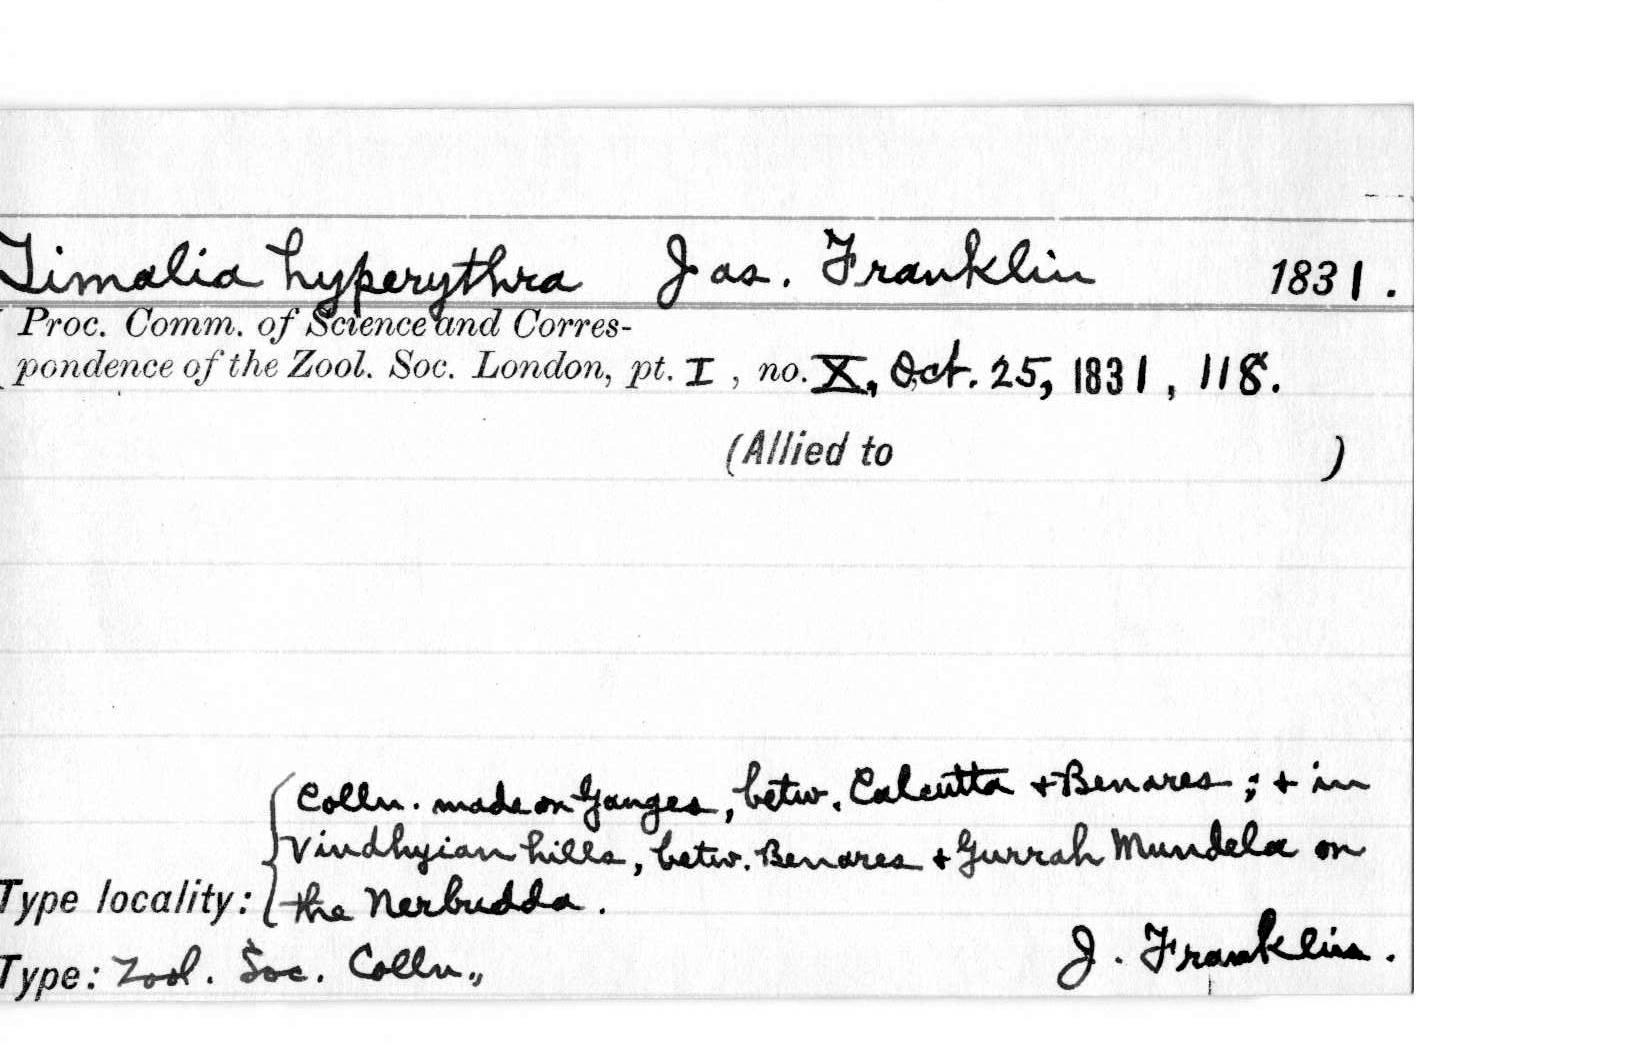 Timalia hyperythra Jas. Franklin 1831.
Proc. Comm. of Science and Corres-
pondence of the Zool. Soc. London, pt. I, no. X, Oct. 25, 1831, 118.
(Allied to )
Colln. made on Ganges, betw. Calcutta + Benares; + in
Vindhyian hills, betw. Benares + Gurrah Mundela on
Type locality: the Nerbudda.
Type: Zool. Soc. Colln., J. Franklin.